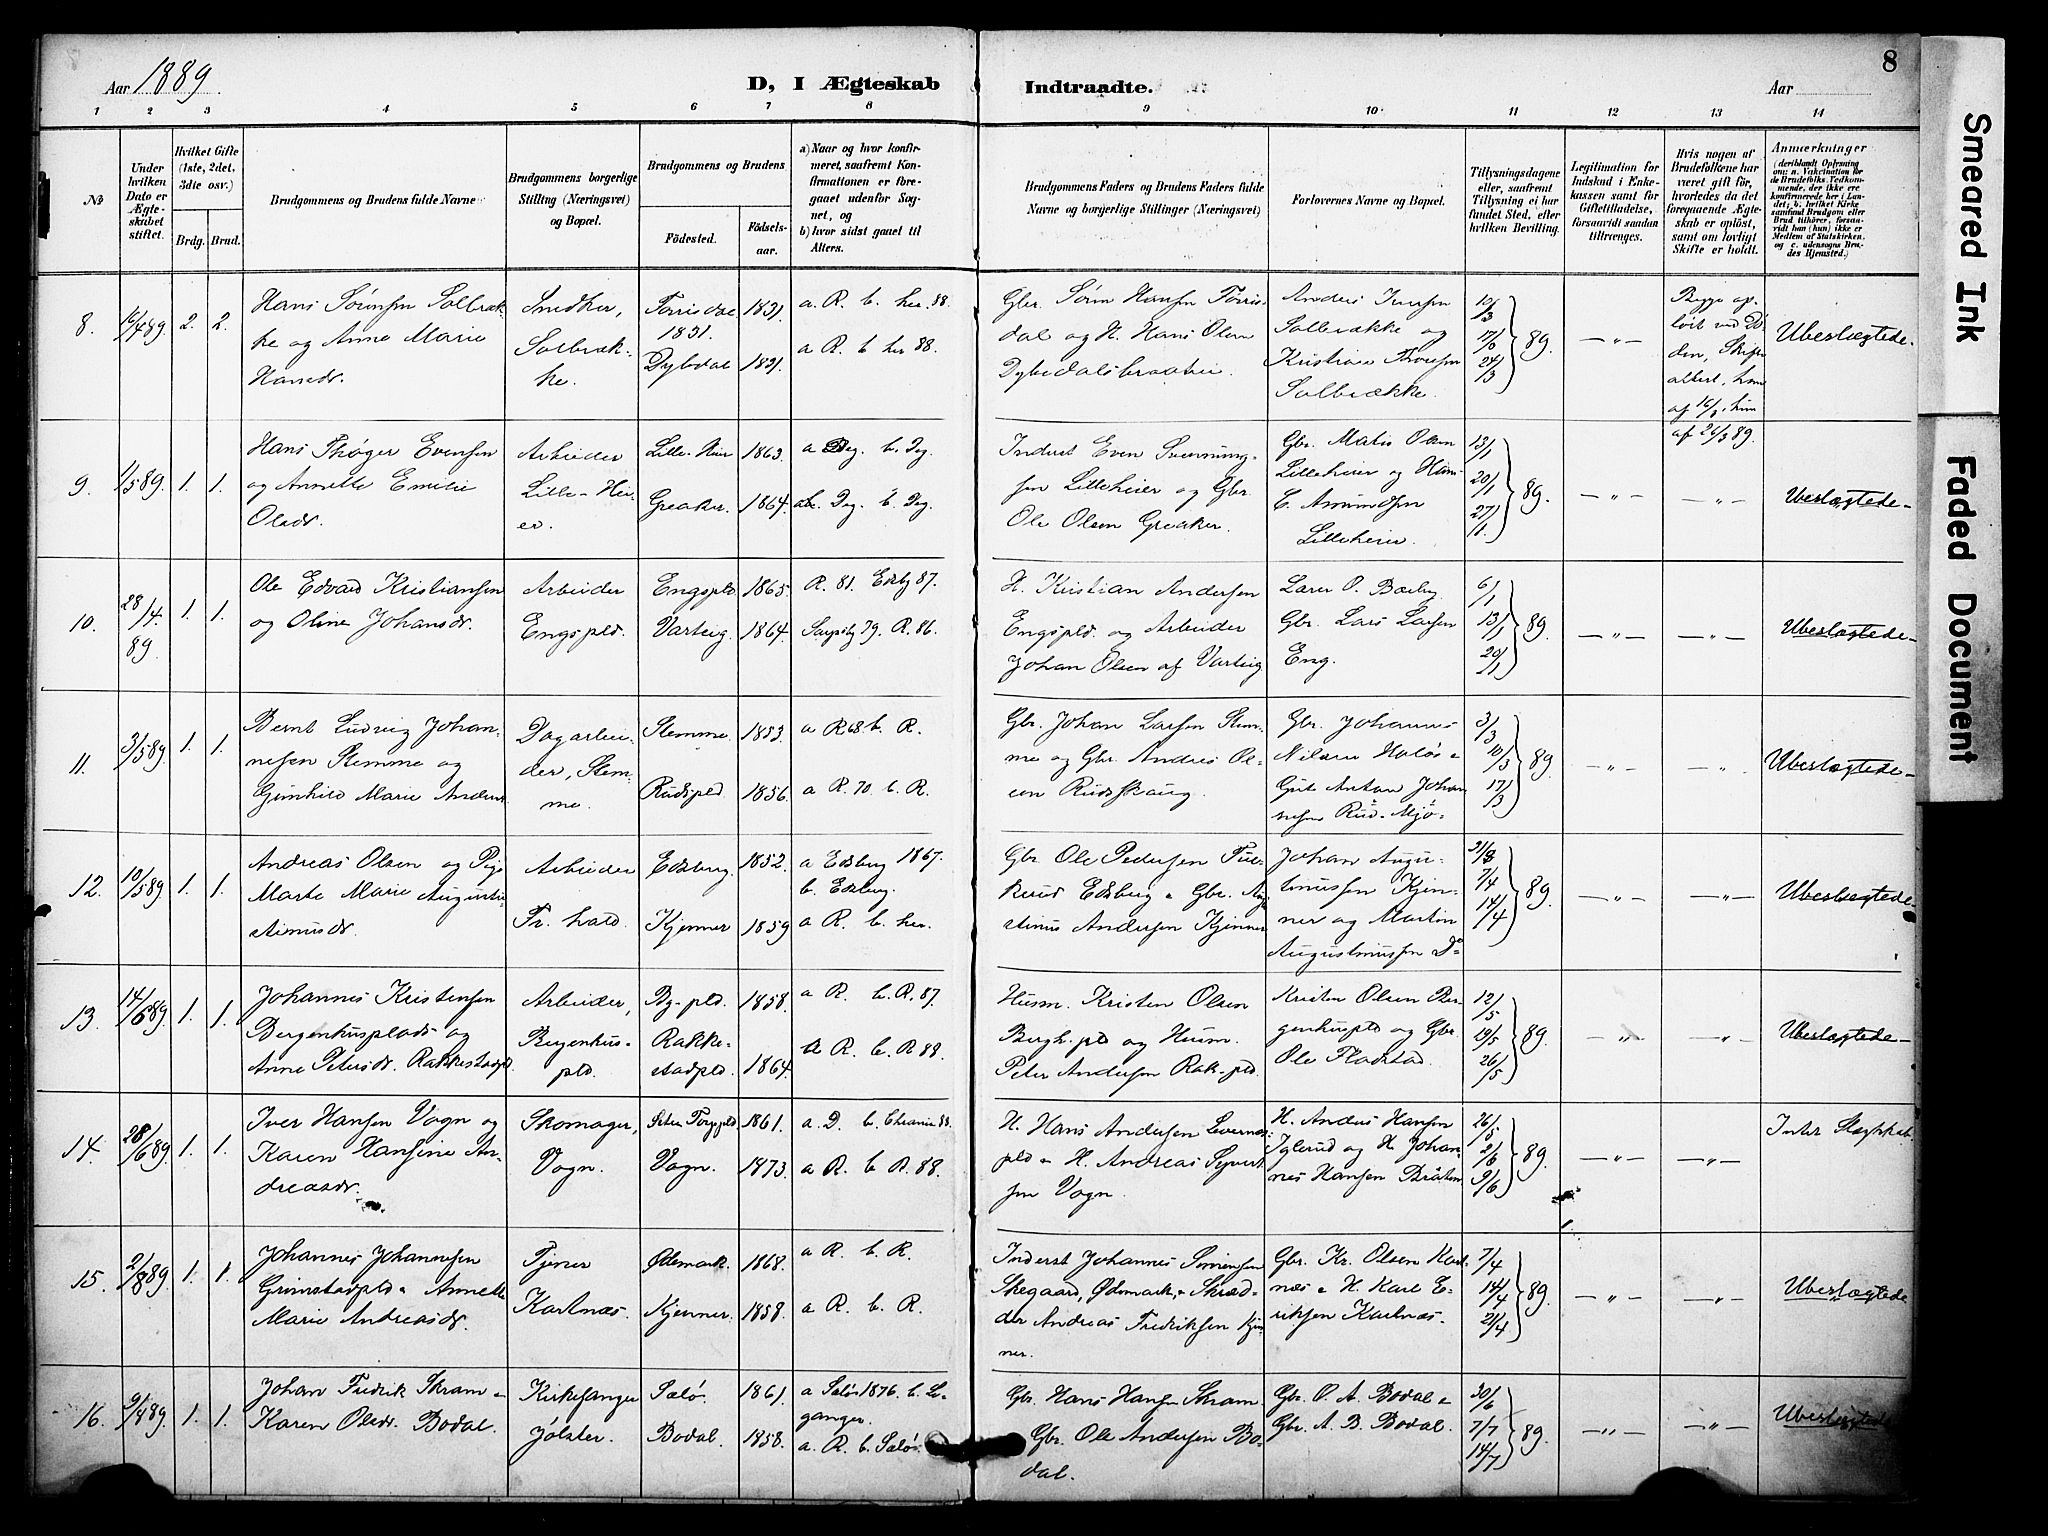 8
Aar 1889.
D, I Ægteskab Indtraadte.
Aar
1 2 3 4 5 6 7 8 9 10 11 12 13 14
No
Under hvilken Dato er Ægteskabet stiftet.
Hvilket Gifte (1ste, 2det, 3die osv.)
Brdg. Brud.
Brudgommens og Brudens fulde Navne
Brudgommens borgerlige Stilling (Næringsvei) og Bopæl.
Brudgommens og Brudens
Födested.
Födselsaar.
a) Naar og hvor konfirmeret, saafremt Konfirmationen er foregaaet udenfor Sognet, og
b) hvor sidst gaaet til Alters.
Brudgommens Faders og Brudens Faders fulde Navne og borgerlige Stillinger (Næringsvei)
Forlovernes Navne og Bopæl.
Tillysningsdagene eller, saafremt Tillysning ei har fundet Sted, efter hvilken Bevilling.
Legitimation for Indskud i Enkekassen samt for Giftetilladelse, forsaavidt saadan tiltrænges.
Hvis nogen af Brudefolkene har været gift før, hvorledes da det foregaaende Ægteskab er opløst, samt om lovligt Skifte er holdt.
Anmærkninger
8. 16/4 89. 2. 2.
Hans Sørensen Solbrække og Anne Marie Hansdr.
Snedker, Solbrække.
Torrisdal 1831. 1831.
Dybdal 1831.
a. R. b. her. 88.
a. R. b. her 88.
Gbr. Sørin Hansen Torrisdal og H. Hans Olsen Dybedalsbraaten
Anders Iversen Solbrække og Kristian Thoresen Solbrække.
10/3 17/3 24/3 89.
Begge opløst ved Døden, Skifte
Ubeslægtede.
9. 1/5 89. 1. 1.
Hans Thøger Evensen og Annette Emilie Olsdr.
Arbeider Lille-Heier.
Lille-Heier 1863.
Greaker. 1864.
a Deg. b. Deg.
Inderst Even Svenningsen Lilleheier og Gbr. Ole Olsen Greaker.
Gbr. Matis Olsen Lilleheier og Hans C. Amundsen Lilleheier.
13/1 20/1 27/1 89.
Ubeslægtede
10. 28/4 89. 1. 1.
Ole Edvard Kristiansen og Oline Johansdr.
Arbeider Engspld.
Engspld. 1865.
Varteig. 1864.
R. 81. Edsbg 87.
Sarpsbg 79. R. 86.
H. Kristian Andersen Engspld. og Arbeider Johan Olsen af Varteig
Lærer O. Bærby Gbr. Lars Larsen Eng.
6/1 13/1 20/1 89.
Ubeslægtede
11. 3/5 89. 1. 1.
Bernt Ludvig Johannesen Stemme og Gunhild Marie Andersdr
Dagarbeider, Stemme.
Stemme. 1853.
Rudspld. 1856.
a R 68 b. R.
a R. 70 b. R.
Gbr. Johan Larsen Stemme og Gbr. Andres Olsen Rudskaug.
Gbr. Johannes Nilsen og Gut Anton Johannesen Rud-
3/3 10/3 17/3 89.
Ubeslægtede
12. 10/5 89. 1. 1.
Andreas Olsen og Pige Marte Marie Augustinusdr.
Arbeider Fr. hald.
Edsberg. 1852.
Kjenner 1859
a Edsberg 1867. b. Edsberg.
a R. b. her.
Gbr Ole Pedersen Edsberg Gbr. Augustinus Andersen Kjenner
Johan Augustinussen Kjenner og Martin Augustinussen Do
31/3 7/4 14/4 89.
Ubeslægtede
13. 14/6 89. 1. 1.
Johannes Kristensen Bergenhusplads og Anne Petersdr. Rakkestadpld
Arbeider, Bergenhuspld.
By-pld. 1858.
Rakkestadpld. 1864.
a R. b. R. 87.
a R. b. R 88.
Husm. Kristen Olsen Bergh. pld og Husm. Peter Andersen Rak-pld.
Kristen Olsen Bergenhuspld og Gbr. Ole Fladstad.
12/5 19/5 26/5 89.
Ubeslægtede
14. 28/6 89. 1. 1.
Iver Hansen Vogn og Karen Hansine Andreasdr.
Skomager, Vogn.
1861.
Vogn. 1873.
a. D. b. Chrania 88.
a R. b R. 88.
H. Hans Andersen pld H. Andreas Syvertsen Vogn.
H. Anders Hansen Iglerud og H. Johannes Hansen Bråten
26/5 2/6 9/6 89.
Intet Slægtskab.
15. 2/8 89. 1. 1.
Johannes Johannesen Grimstadpld Annette Marie Andreasdr.
Tjener Karlnæs.
Ødemark. 1868.
Kjenner. 1858.
a R. b. R.
a R. b. R.
Inderst Johannes Simensen Skegaard, Ødemark, Skrædder Andreas Fredriksen Kjenner.
Gbr. Kr. Olsen Karlnæs H. Karl Eriksen Karlnæs.
7/4 14/4 21/4 89.
Ubeslægtede
16. 9/8 89. 1. 1.
Johan Fredrik Skram Karen Olsdr. Bodal.
Kirkesanger Jølster.
Sælø. 1861.
Bodal. 1858.
a Sælø 1876. b. Leganger.
a. R. b. Sælø.
Gbr. Hans Hansen Skram Gbr. Ole Andersen Bodal.
Gbr. O. A. Bodal Gbr. A. B. Bodal.
30/6 7/7 14/7 89.
Ubeslægtede
Smeared Ink
Faded Document